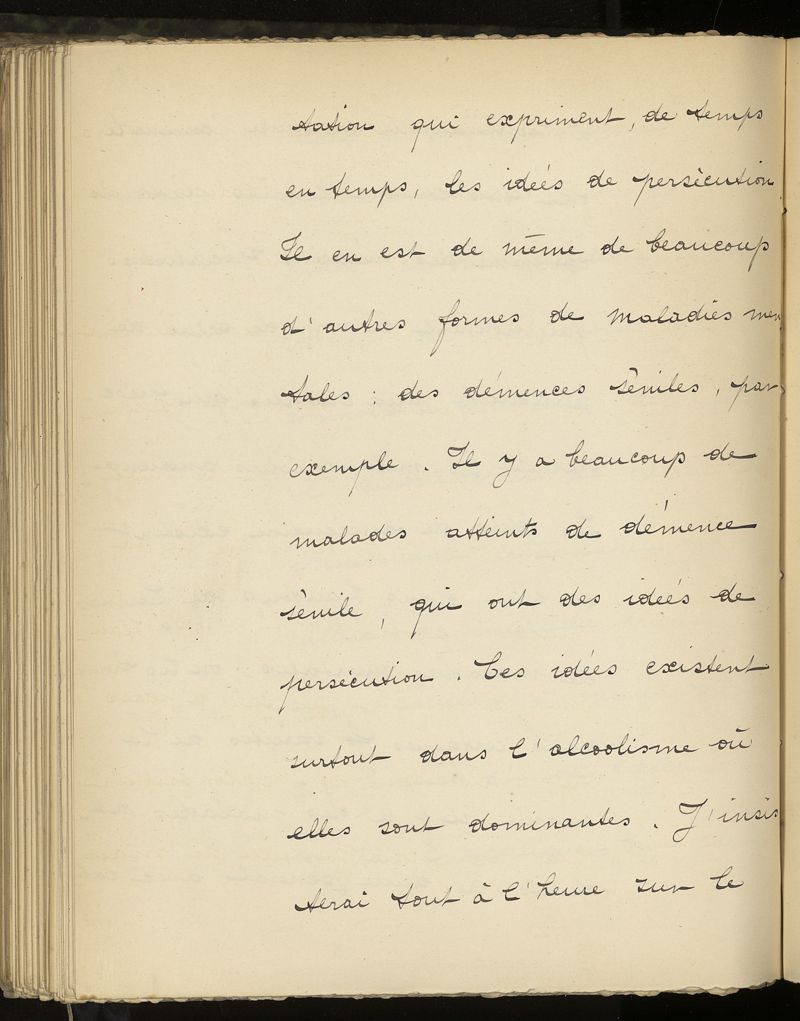 tation qui expriment, de temps
en temps, les ideés de persécution
Il en est de même de beaucoup
d'autres formes de maladies men
tales : des démences séniles, par
exemple. Il y a beaucoup de
malades atteints de démence
sénile, qui ont des ideés de
persécution. Ces idées existent
surtout dans l'alcoolisme où
elles sont dominantes. J'insis
terai tout à l'heure sur le